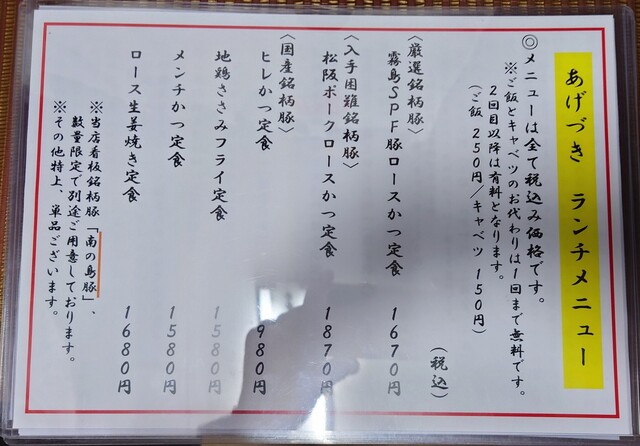 あげづき ランチメニュー
◎メニューは全て税込み価格です。
※ご飯とキャベツのお代わりは1回まで無料です。
2回目以降は有料となります。
(ご飯 250円/キャベツ 150円)
(税込)
〈厳選銘柄豚〉
霧島SPF豚ロースかつ定食 1670円
〈入手困難銘柄豚〉
松阪ポークロースかつ定食 1870円
〈国産銘柄豚〉
ヒレかつ定食 980円
地鶏ささみフライ定食 1580円
メンチかつ定食 1580円
ロース生姜焼き定食 1680円
※当店看板銘柄豚「南の島豚」、
数量限定で別途ご用意しております。
※その他特上、単品ございます。